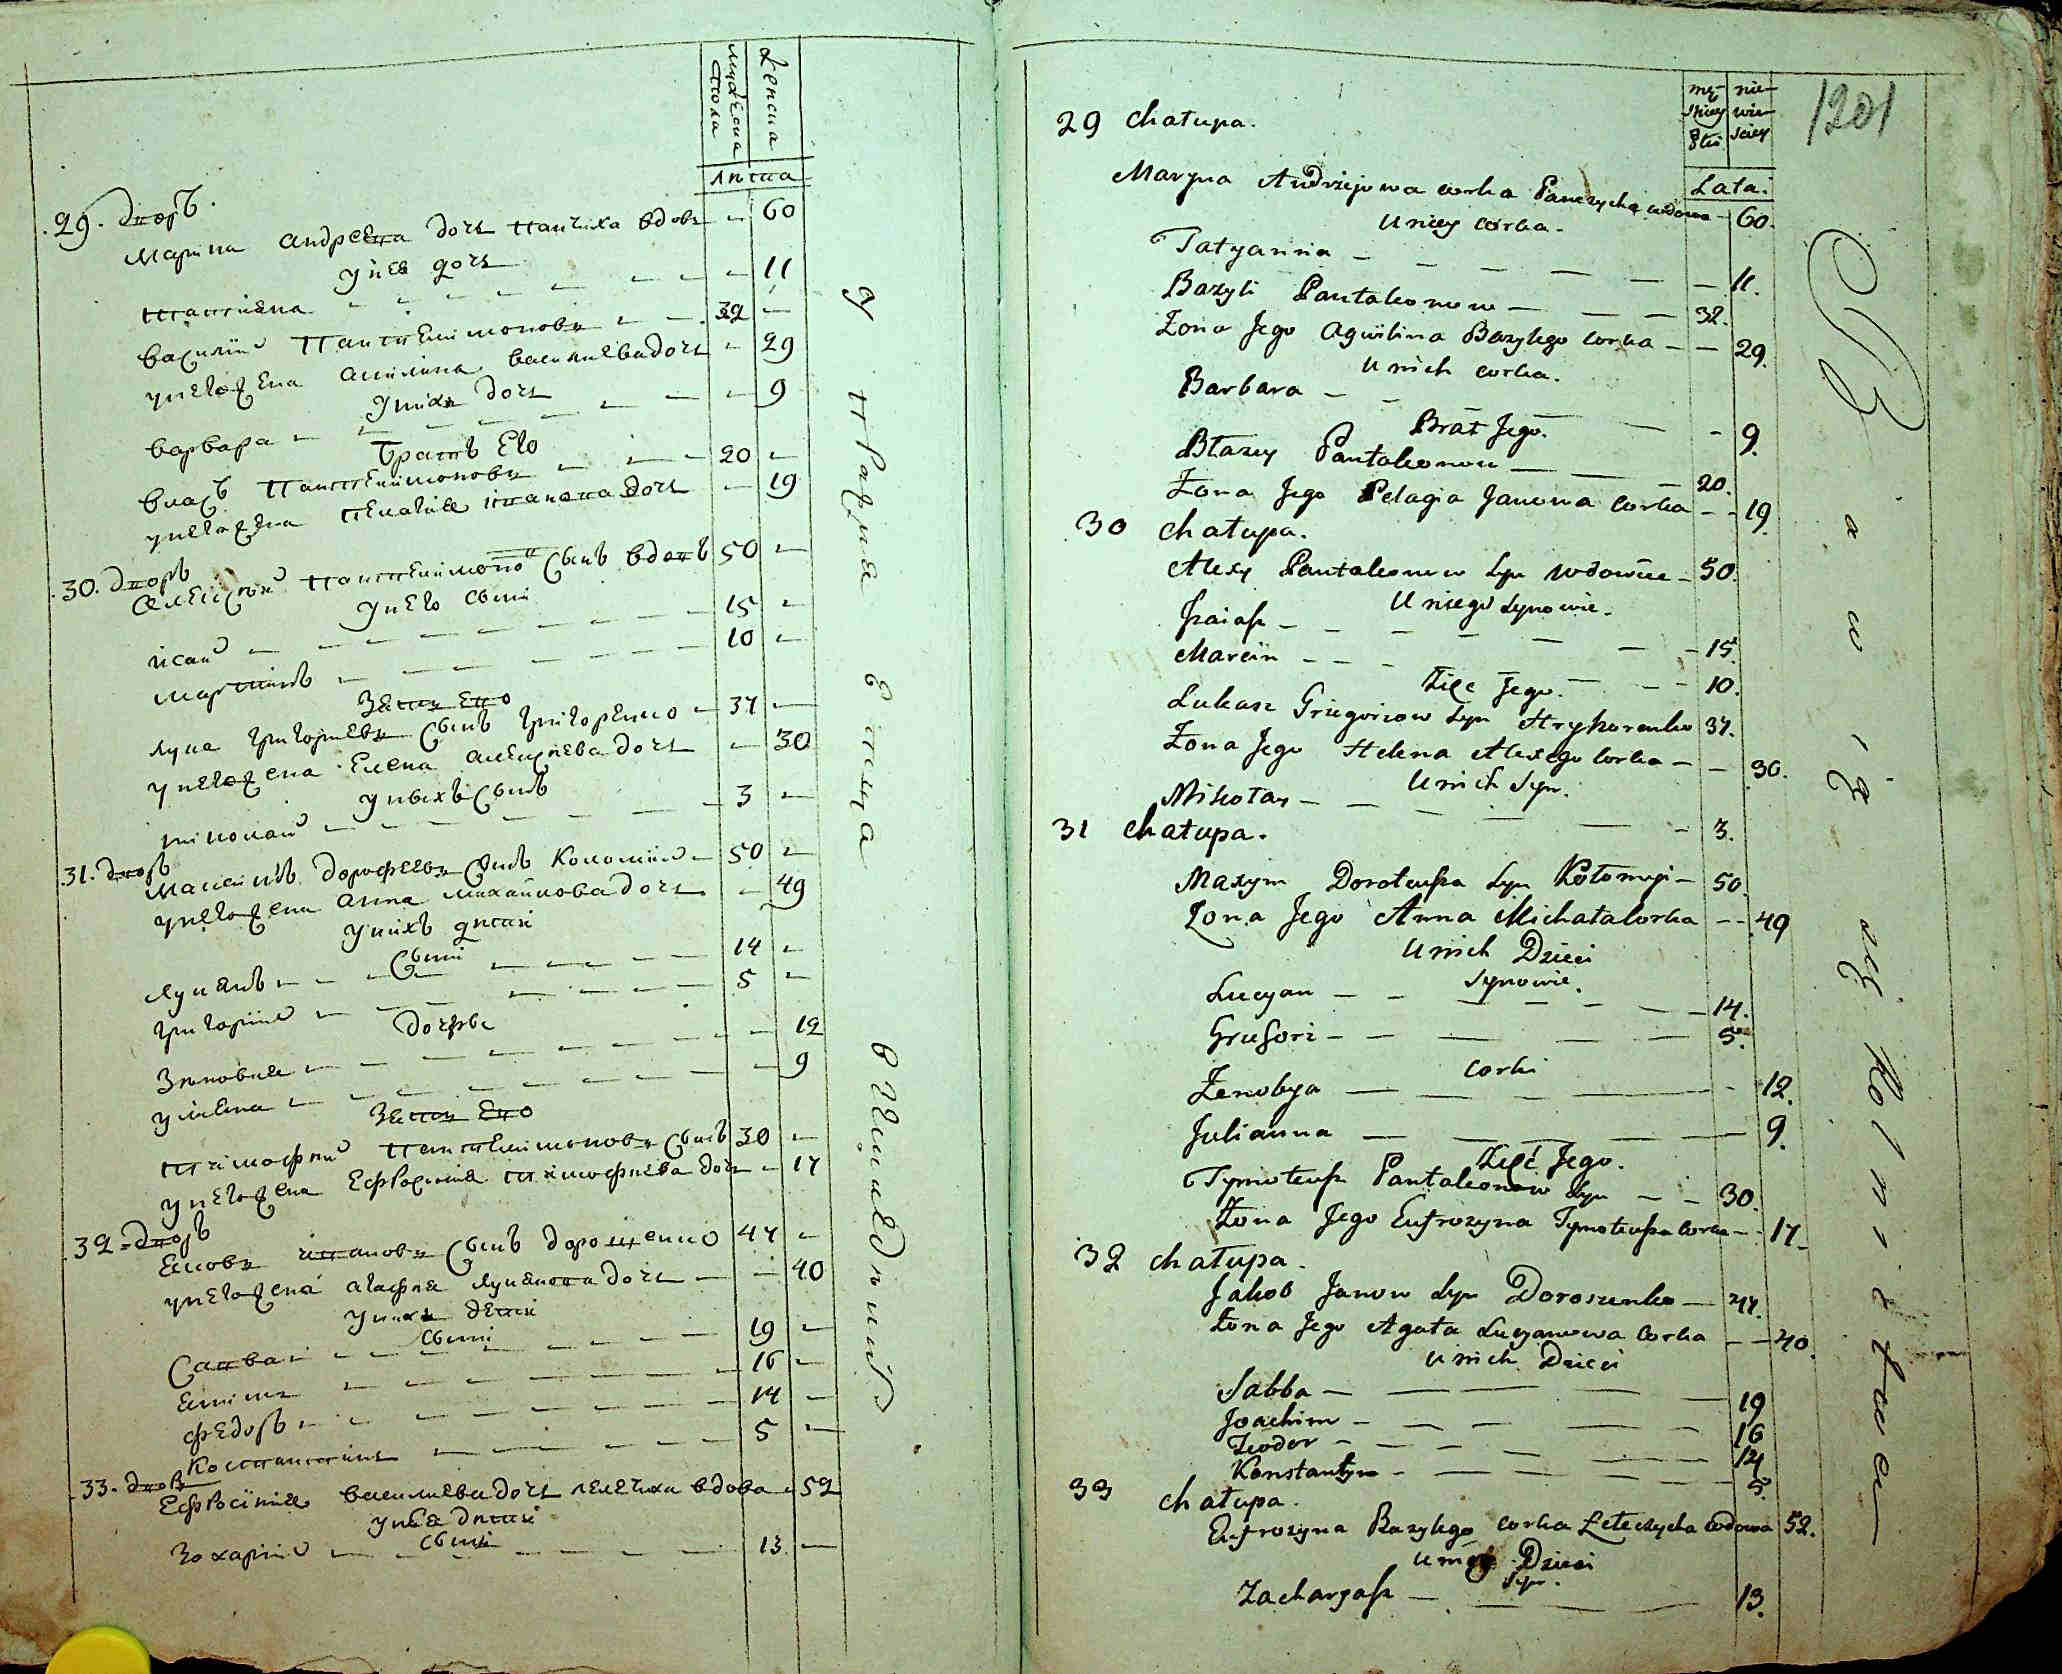 мужеска
пола
женска
лѣта
29. дворъ.
Марина андреева дочь панчиха вдова - 60
у нея дочь
татияна - 11
василий Пантелимоновъ - 32 -
у него жена акилина василиева дочь - 29
у нихъ дочь
варвара - 9
братъ его
власъ Пантелимоновъ - 20 -
у него жена пелагия иванова дочь - 19
30. дворъ
алексѣй пантелимоно сынъ вдовъ 50 -
у него сыни
исаи - 15 -
мартинъ - 10 -
зять его
лука григориевъ сынъ григоренко - 37 -
у него жена елена алексиева дочь - 30
у ныхъ сынъ
николаи - 3 -
31. дворъ
максимъ дорофеевъ сынъ коломиий - 50 -
у него жена анна михайлова дочь - 49
у нихъ дѣти
сыни
лукиянъ - 14 -
григорий - 5 -
дочерѣ
зѣновия - 12
улияна - 9
зять его
тимофѣй пантелимоновъ сынъ 30 -
у него жена ефросиния тимофѣева дочь - 17
32 дворъ
яковъ ивановъ сынъ дорошенко 47 -
у него жена агафия лукянова дочь - 40
у нихъ дети
сыни
савва - 19 -
якимъ - 16 -
федоръ - 14 -
константинъ - 5 -
33. дворъ
ефросиния василиева дочь лелечиха вдова - 52
у нея дѣти
сыни
захарий - 13 -
1201
mę-
skiey
Płci
nie-
wie-
sciey
Lata.
29 Chałupa.
Maryna Andrzejowa corka Panczycha wdowa - 60.
U niey corka.
Tatyanna - 11.
Bazyli Pantaleonow - 32.
Zona Jego Aquilina Bazylego corka - 29.
U nich corka.
Barbara - 9.
Brat Jego.
Błazey Pantaleonow - 20.
Zona Jego Pelagia Janowa Corka - 19.
30 Chałupa.
Alexy Pantaleonow Syn Wdowiec - 50.
U niego Synowie.
Izaiasz - 15.
Marcin - 10.
Zięć Jego.
Lukasz Griegoriow Syn Hryhorenko 37.
Zona Jego Helena Alexego Corka - 30.
U nich Syn.
Mikołay - 3.
31 Chałupa.
Maxym Doroteusza Syn Kołomyi - 50
Zona Jego Anna Michała Corka - 49
U nich Dzieci
Synowie.
Lucyan - 14.
Griegori - 5.
Corki
Zenobya - 12.
Julianna - 9.
Zięć Jego.
Tymoteusz Pantaleonow Syn - 30.
Zona Jego Eufrozyna Tymoteusza Corka - 17.
32 Chałupa.
Jakob Janow Syn Doroszenko - 47.
Zona Jego Agata Lucyanowa Corka - 40.
U nich Dzieci
Sabba - 19
Joachim - 16
Teodor - 14
Konstantyn - 5.
33 Chałupa.
Eufrozyna Bazylego corka Leleczycha Wdowa 52.
U niey Dzieci
Syn.
Zacharyasz - 13.